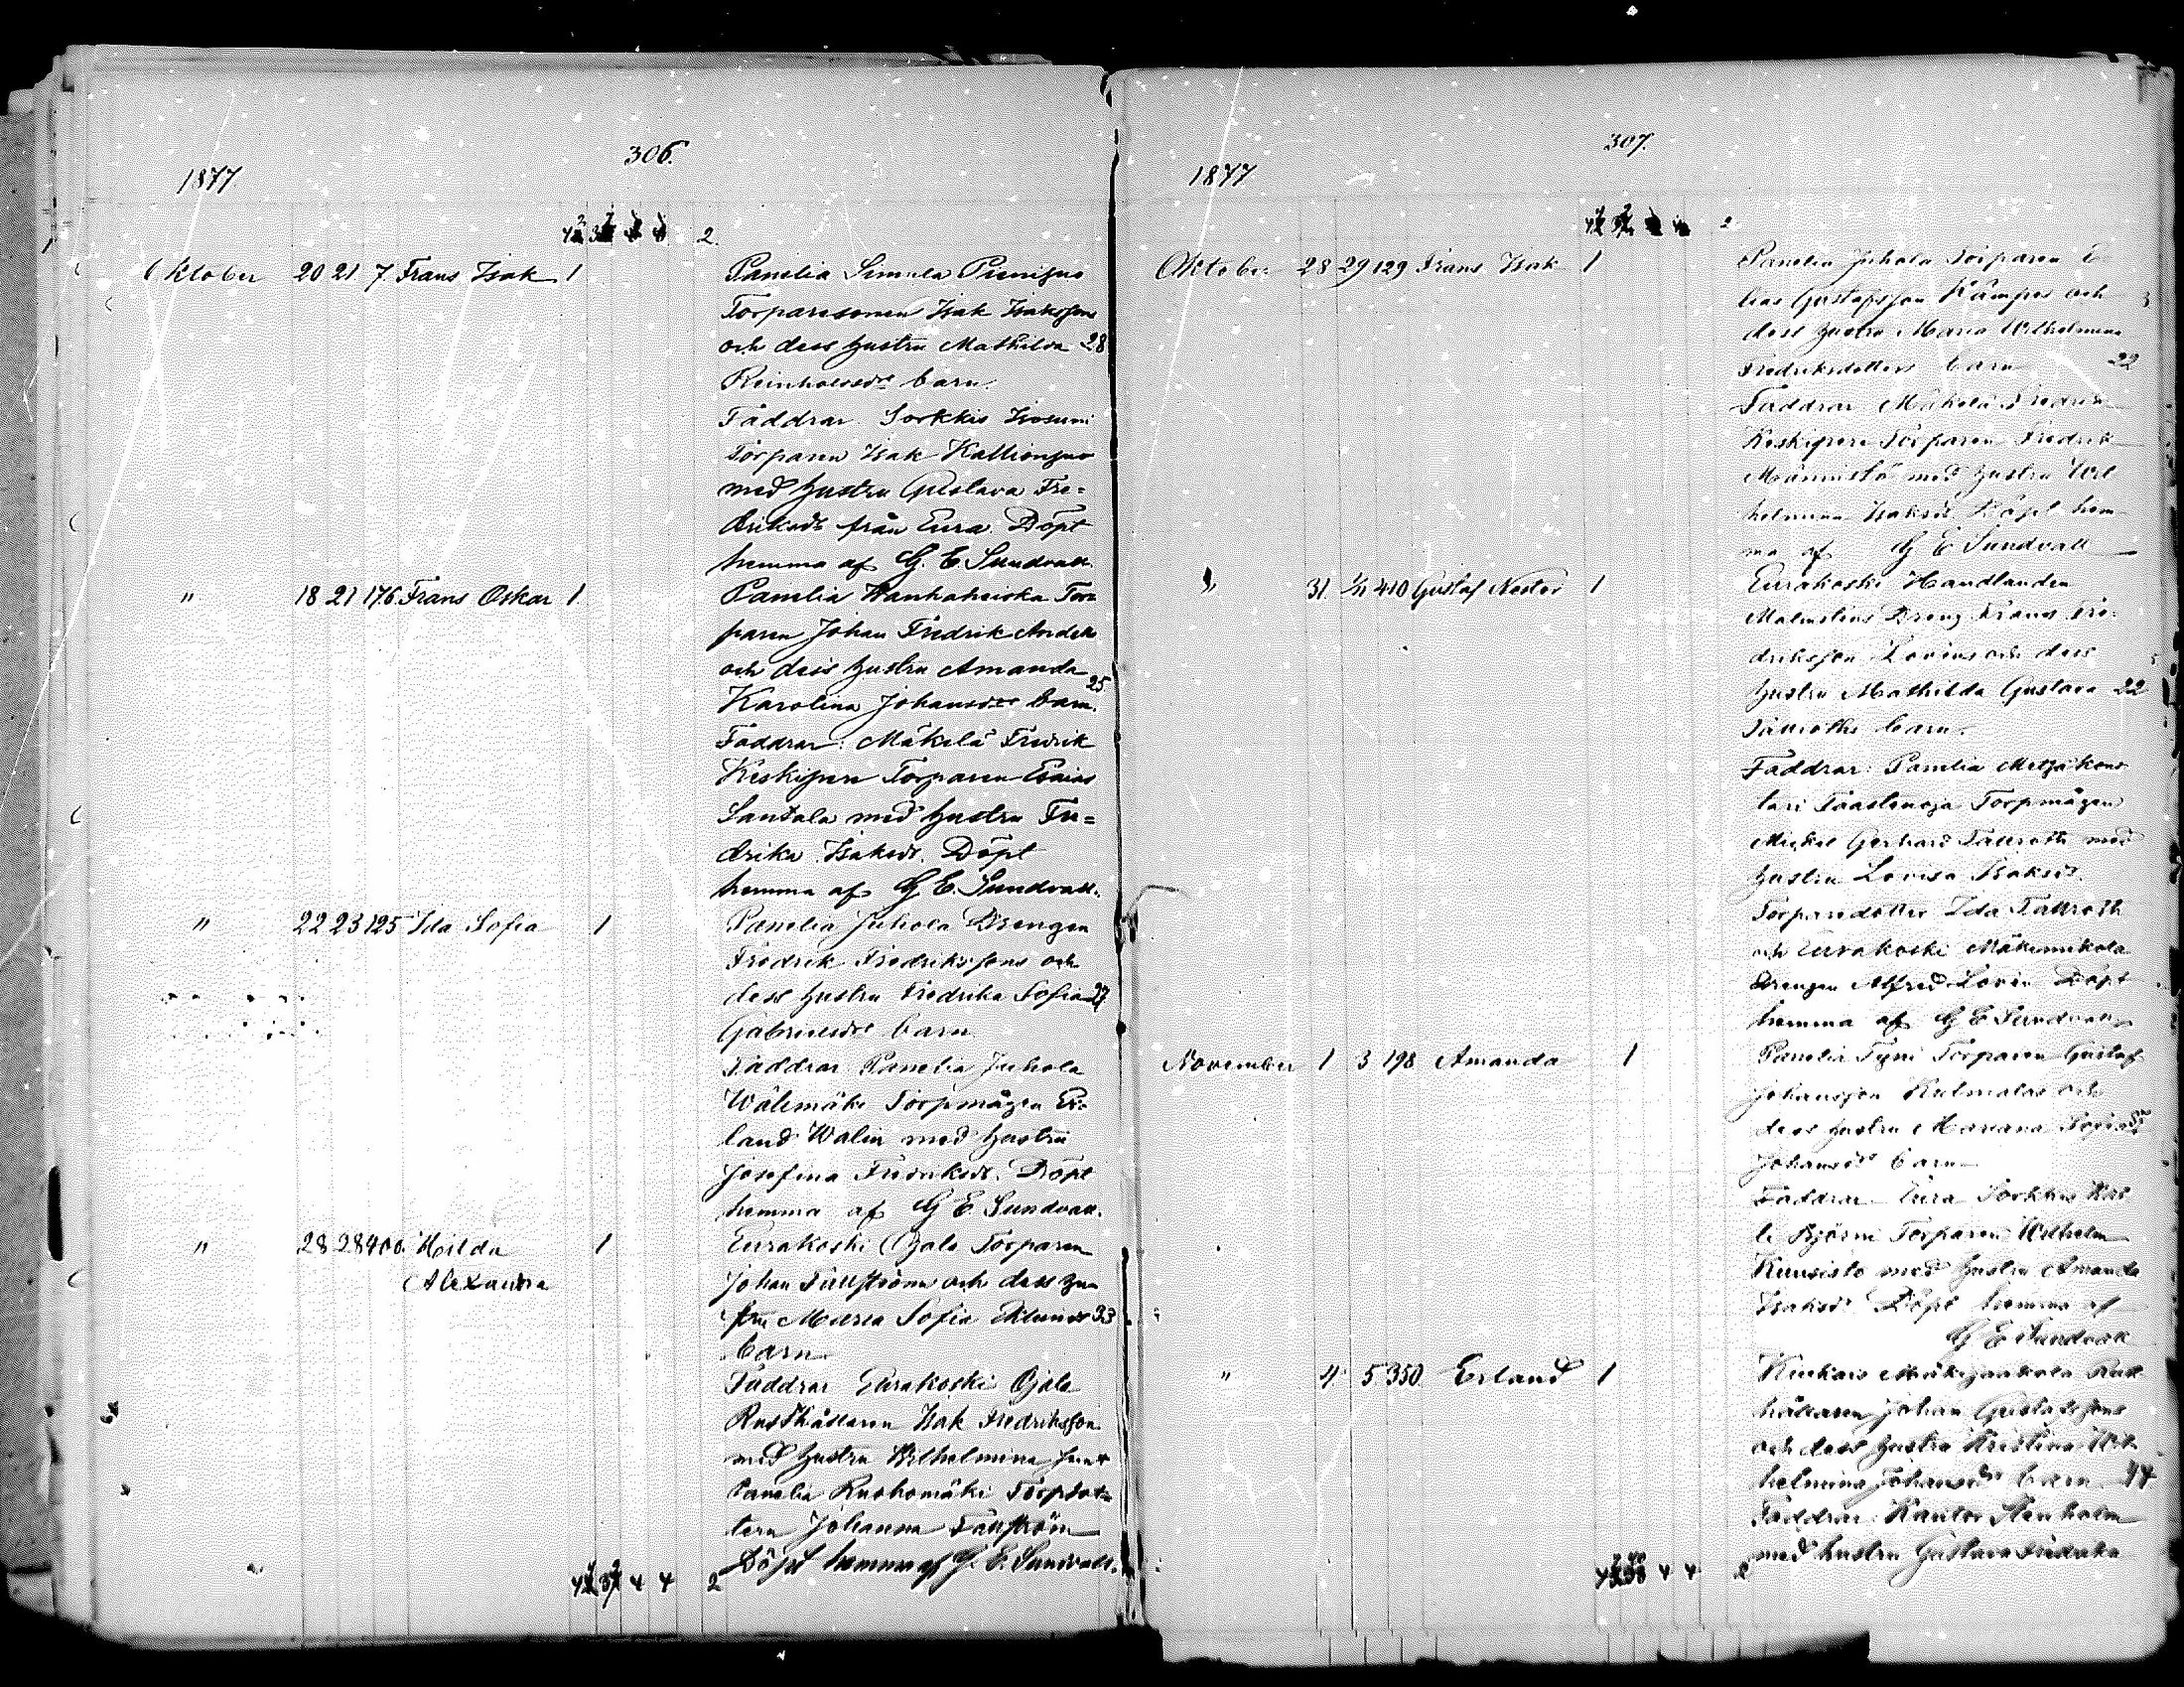 306.
1877
2.
Oktober 20 21 7. Frans Isak 1 Panelia Simula
Torparesonen Isak Isakssons
och dess hustru Mathilda 28
barn.
Faddrar Sorkkis Isosumi
Torparen Isak Kallionjuo
med hustru Gustava Fre=
driksdr från Eura. Döpt
hemma af G. E. Sundvall.
" 18 21 176. Frans Oskar 1. Panelia Wanhaheiska Tor=
paren Johan Fredrik
och dess hustru Amanda 25
Karolina Johansdrs barn.
Faddrar: Mäkelä Fredrik
Keskijura Torparen Esaias
Santala med hustru Fre=
drika Isaksdr. Döpt
hemma af G. E. Sundvall.
" 22 23 125 Ida Sofia 1 Panelia Juhola Drengen
Fredrik Fredrikssons och
dess hustru Fredrika Sofia 27
Gabrielsdrs barn
Faddrar Panelia Juhola
Wälimäki Torpmågen Er=
land Walin med hustru
Josefina Fredriksdr. Döpt
hemma af G E. Sundvall.
" 28 28 400. Hilda 1 Eurakoski Ojala Torparen
Alexandra Johan Fällström och dess hu=
stru Maria Sofia Eklunds 33
barn
Faddrar Eurakoski Ojala
Rusthållaren Isak Fredriksson
med hustru Wilhelmina samt
Panelia Ruohomäki Torpdot=
tern Johanna Fällström
Döpt hemma af G. E. Sundvall.
4 4 2
307.
1877
2
Oktober 28 29 129 Frans Isak 1 Panelia Juhola Torparen E=
lias Gustafsson Kämpes och
dess hustru Maria Wilhelmina
Fredriksdotters barn 22
Faddrar Mäkelä Fredrik
Keskijura Torparen Fredrik
Männistö med hustru Wil
helmina Isaksdr Döpt hem=
ma af G E Sundvall
" 31 1/11 410 Gustaf Nestor 1 Eurakoski Handlanden
Malmelins Dreng Frans Fre=
driksson Lovins och dess
hustru Mathilda Gustava 22
barn.
Faddrar: Panelia
Torpmågen
Mickel Gerhard med
hustru Lovisa Isaksdr.
Torparedotter Ida
och Eurakoski Mäkimikola
Drengen Alfred Lovin Döpt
hemma af G E Sundvall
November 1 3 198 Amanda 1 Panelia Tyni Torparen Gustaf
Johansson Kulmalas och
dess hustru Mariana Sofia
Johansdrs barn
Faddrar Eura Sorkkis Kal
le Björni Torparen Wilhelm
Kuusisto med hustru Amanda
Isaksdr Döpt hemma af
G E Sundvall
" 4. 5 350 Erland 1 Kiukais Mäkijaakola Rust
hållaren Johan Gustafssons
och dess hustru Kristina Wil
helmina Johansdrs barn 44
Faddrar: Kantor Stenholm
med hustru Gustava Fredrika
4 4